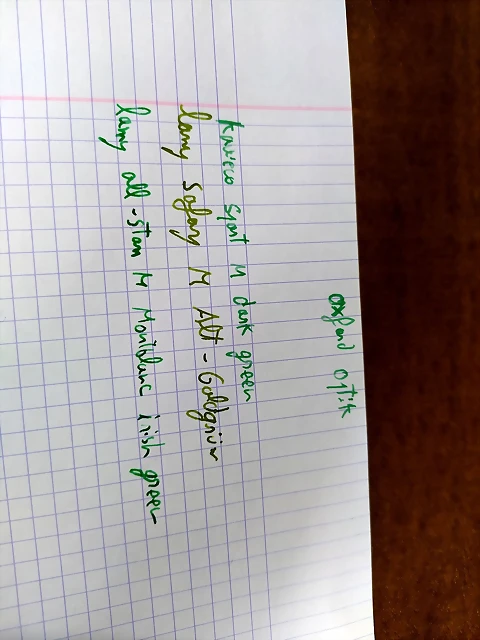 oxford optik
Kaweco Sport M dark green
lamy safary M Alt-Goldgrün
lamy all-stam M Montblanc irish green